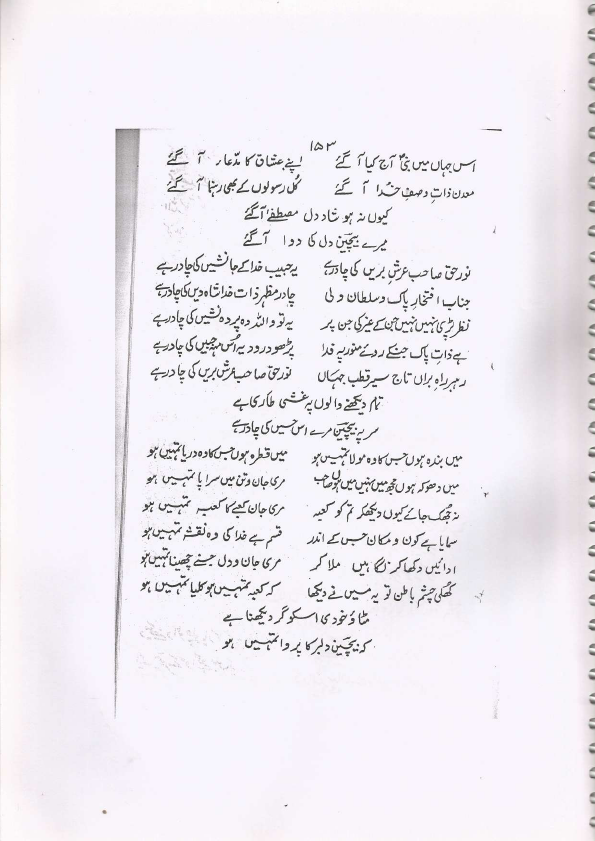 ۱۵۳
اس جہاں میں نبیؐ آج کیا آ گئے اپنے عشاق کا مدّعا آ گئے
معدن ذاتِ وصفِ خدا آ گئے کُل رسولوں کے بھی رہنما آ گئے
کیوں نہ ہو شاد دل مصطفےٰؐ آ گئے
میرے بیچین دل کی دوا آ گئے
نور حق صاحب عرشِ بریں کی چادرہے یہ حبیب خدا کے جانشیں کی چادرہے
جناب افتخارِ پاک و سلطان ولی چادر مظہر ذات خدا شاہ دیں کی چادرہے
نظر پڑی نہیں نہیں جن کے غیر کی جن پر یہ تو واللہ وہ پردہ نشیں کی چادرہے
ہے ذاتِ پاک جنکے روئے منور پہ فدا پڑھو درود یہ اُس مہ جبیں کی چادرہے
رہبر راہ براں تاج سیر قطب جہاں نور حق صاحب عرش بریں کی چادرہے
تمام دیکھنے والوں پہ غشی طاری ہے
سر پہ بیچین مرے اس حسیں کی چادرہے
میں بندہ ہوں جس کا وہ مولا تمہیں ہو میں قطرہ ہوں جس کا وہ دریا تمہیں ہو
میں دھوکہ ہوں مجھ میں نہیں میں ہوں صاحب مری جان و تن میں سراپا تمہیں ہو
نہ جھک جائے کیوں دیکھکر تم کو کعبہ مری جان کعبے کا کعبہ تمہیں ہو
سمایا ہے کون و مکان جس کے اندر قسم ہے خدا کی وہ نقشہ تمہیں ہو
ادائیں دکھا کر نگاہیں ملا کر مری جان و دل جسنے چھینا تمہیں ہو
کُھلی چشم باطن تو یہ میں نے دیکھا کہ کعبہ تمہیں ہو کلیسا تمہیں ہو
مٹاؤ خودی اسکو گر دیکھنا ہے
کہ بیچین دلبر کا پروا تمہیں ہو